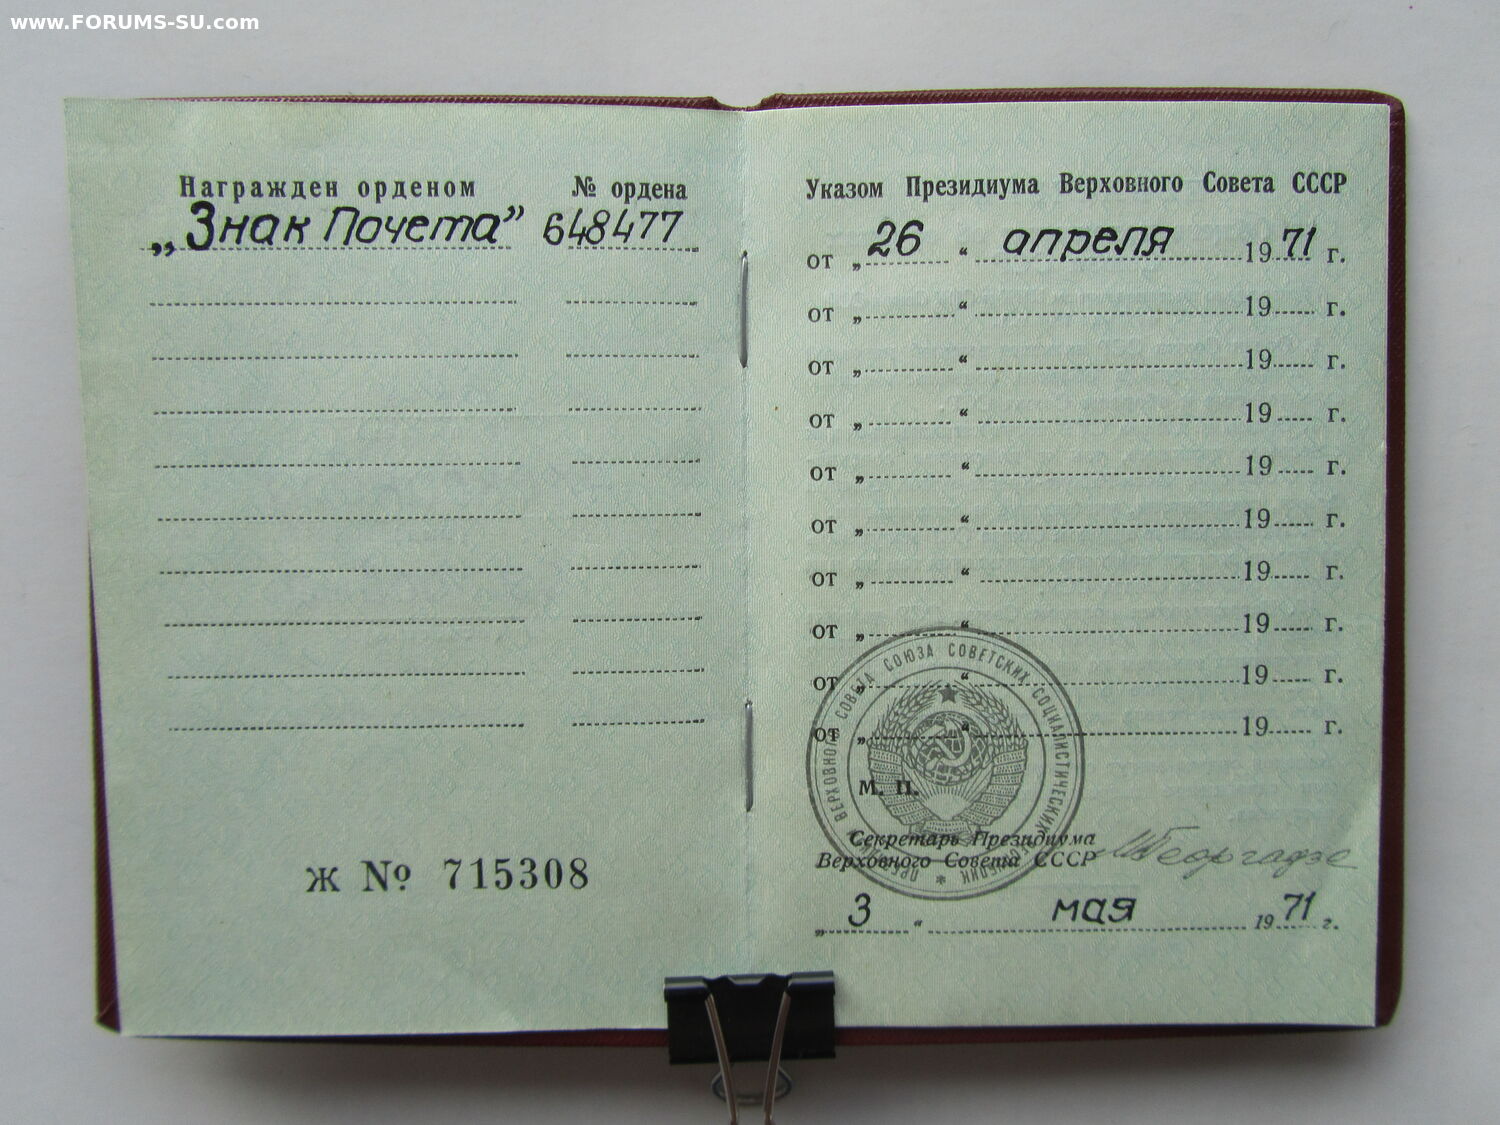 www.FORUMS-SU.com
Награжден орденом № ордена
„Знак Почета” 648477
Ж № 715308
Указом Президиума Верховного Совета СССР
от „ 26 “ апреля 19 71 г.
от „ “ 19 г.
от „ “ 19 г.
от „ “ 19 г.
от „ “ 19 г.
от „ “ 19 г.
от „ “ 19 г.
от „ “ 19 г.
от „ “ 19 г.
от „ “ 19 г.
ПРЕЗИДИУМ ВЕРХОВНОГО СОВЕТА СОЮЗА СОВЕТСКИХ СОЦИАЛИСТИЧЕСКИХ РЕСПУБЛИК *
М. П.
Секретарь Президиума
Верховного Совета СССР МГеоргадзе
„ 3 “ мая 19 71 г.